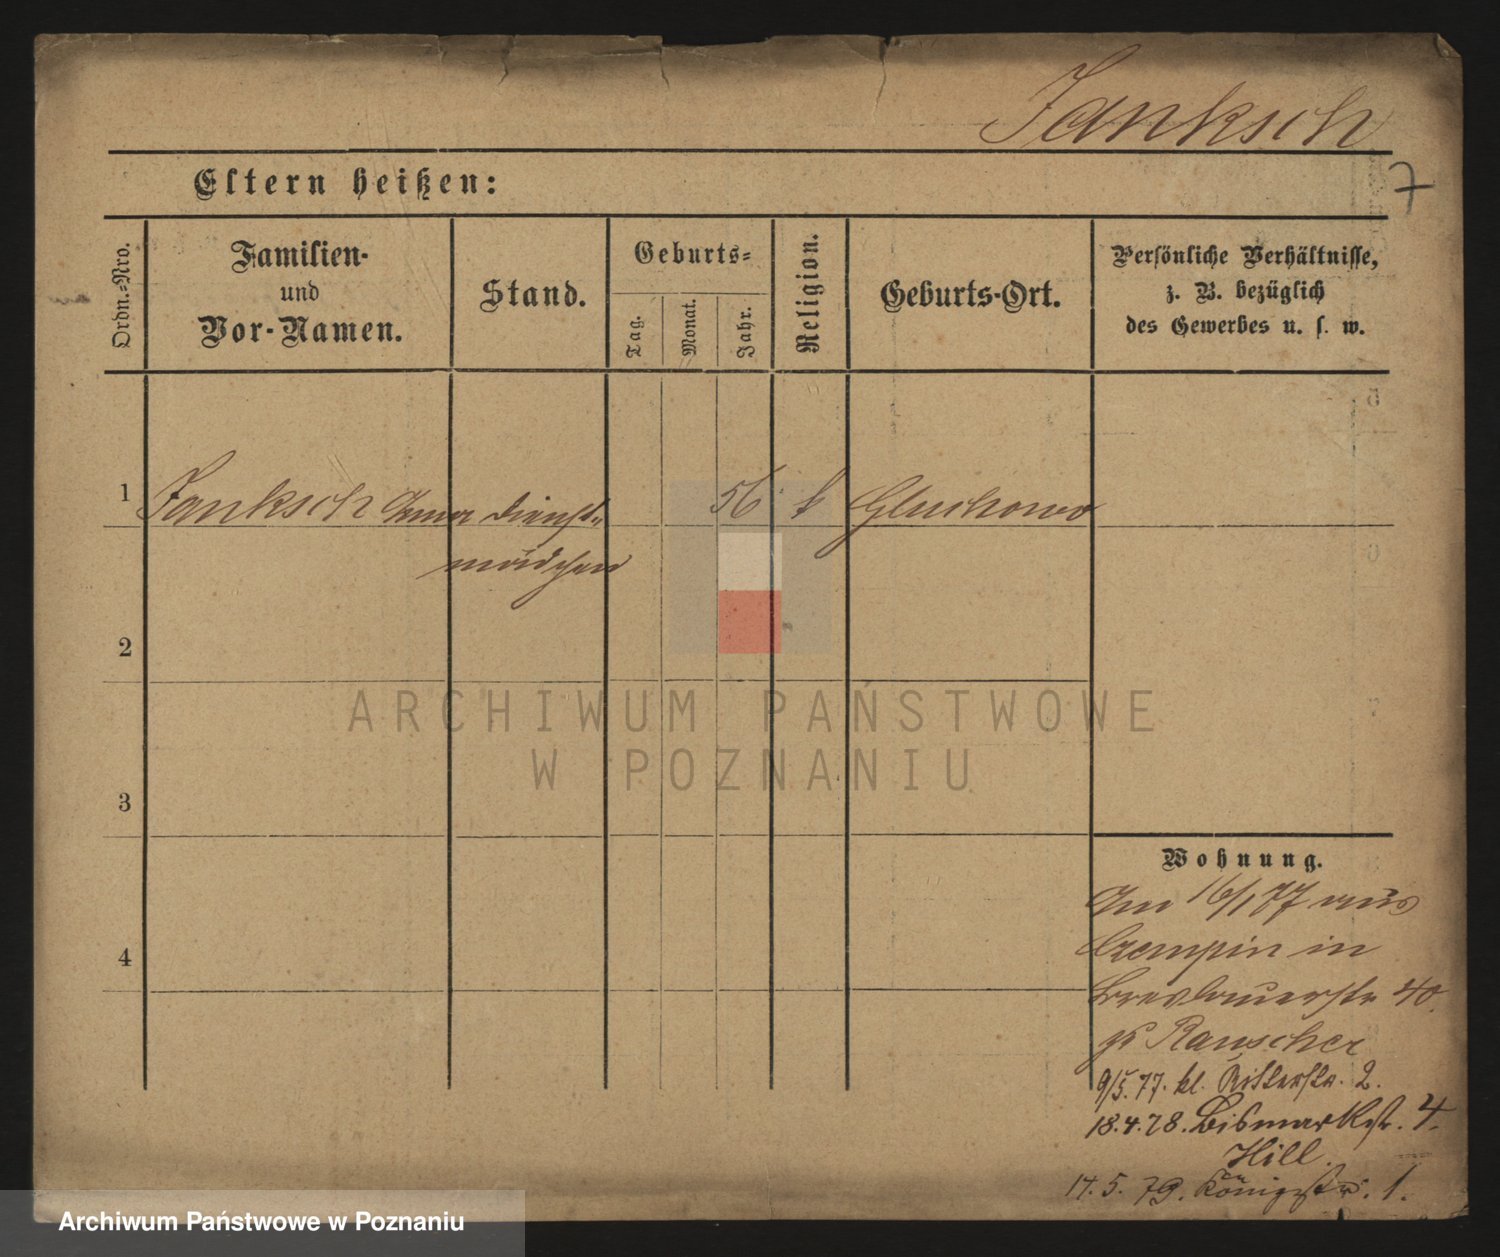 Janksch
7
Eltern heißen:
Ordn.-Nro.
Familien-
und
Vor-Namen.
Stand.
Geburts-
Tag.
Monat.
Jahr.
Religion.
Geburts-Ort.
Persönliche Verhältnisse,
z. B. bezüglich
des Gewerbes u. s. w.
1 Janksch Dienst- 56 k Gluchowo
mädchen
2
ARCHIWUM PAŃSTWOWE
W POZNANIU
3
Wohnung.
16/1 77 aus
Czempin in
4
Breslauerstr 40.
Rauscher
9/5. 77. kl. Ritterstr. 2.
18.4.78. Bismarkstr. 4.
Hill.
14. 5. 79. Königstr. 1.
Archiwum Państwowe w Poznaniu